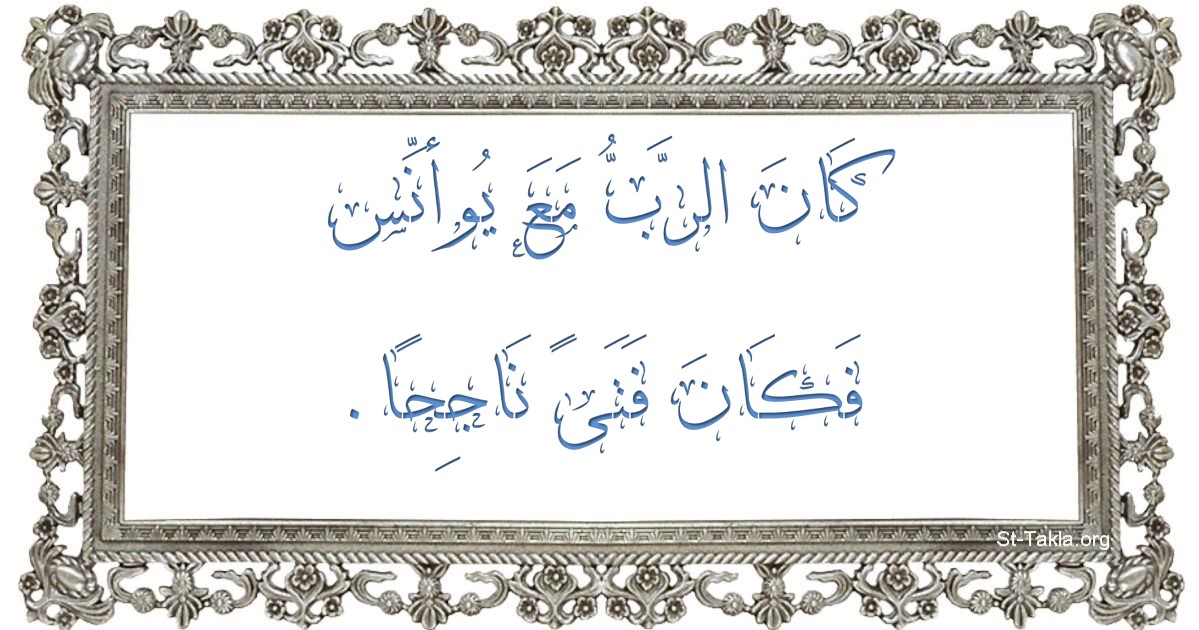 كَانَ الرَّبُّ مَعَ يُوأَنِّس
فَكَانَ فَتَىً نَاجِحًا .
St-Takla.org